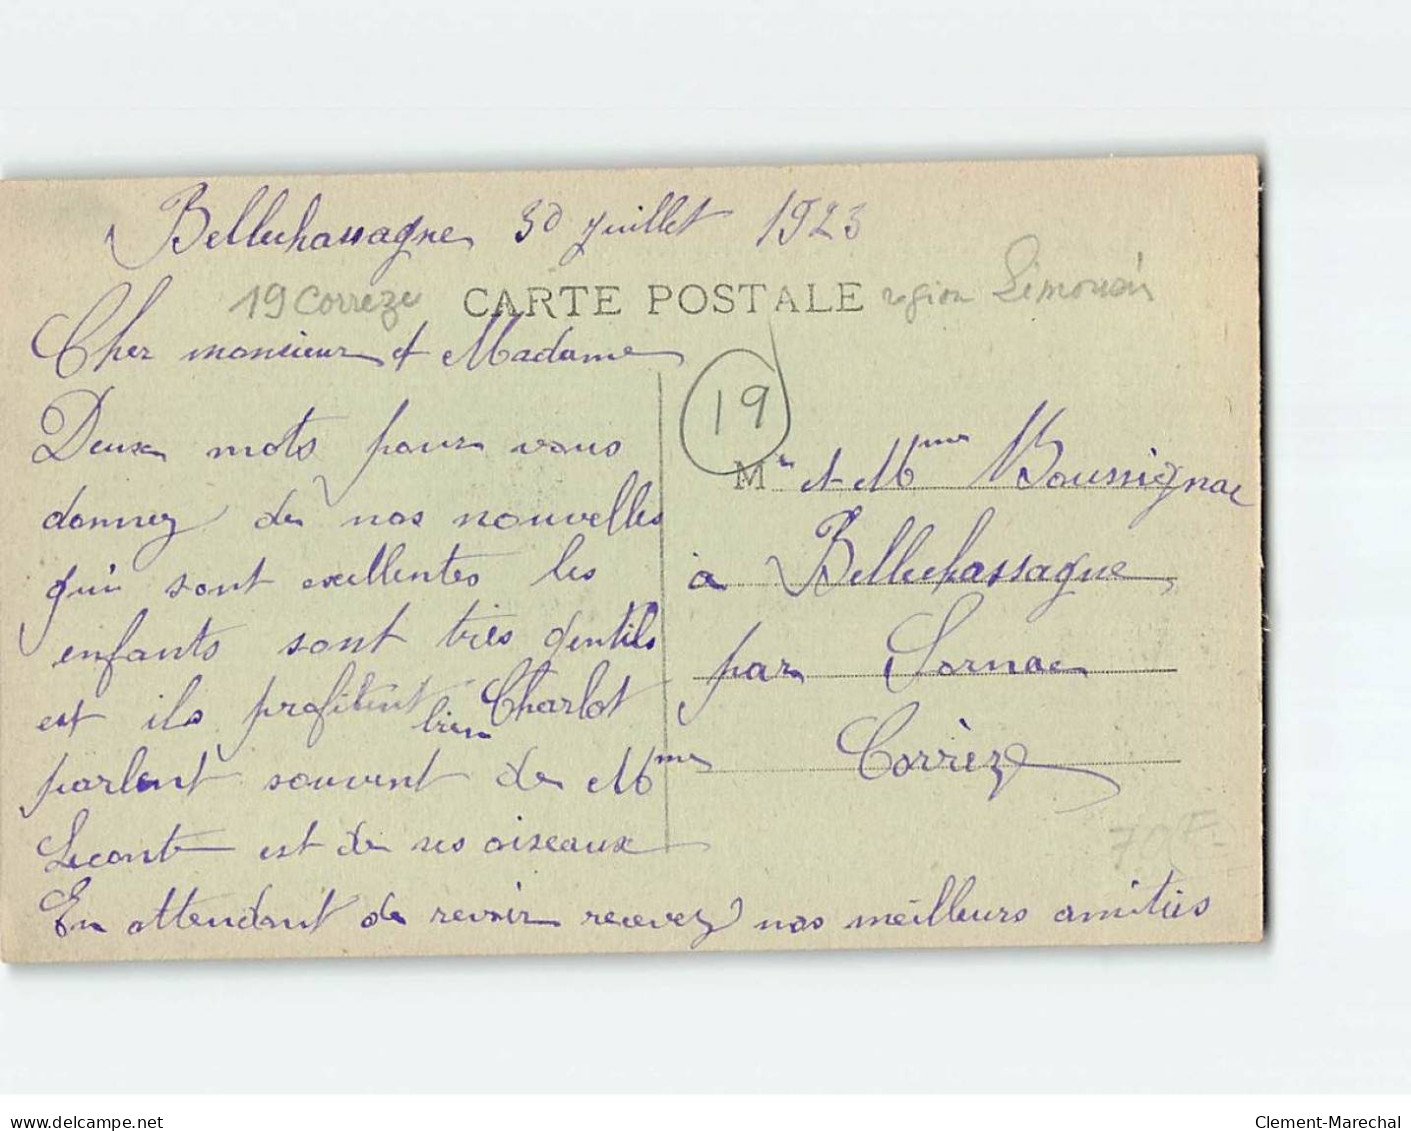 Bellechassagne 30 Juillet 1923
19 Corrèze CARTE POSTALE région Limousin
Cher monsieur et Madame
Deux mots pour vous
donnez de nos nouvelles
qui sont exellentes les
enfants sont très gentils
est ils profitent bien Charlot
parlent souvent de Mme
Leconte est de ses oiseaux
En attendant de revoir recevez nos meilleurs amitiés
19
Mr et Mme Boussignac
à Bellechassagne
par Sornac
Corrèze
www.delcampe.net
Clement-Marechal